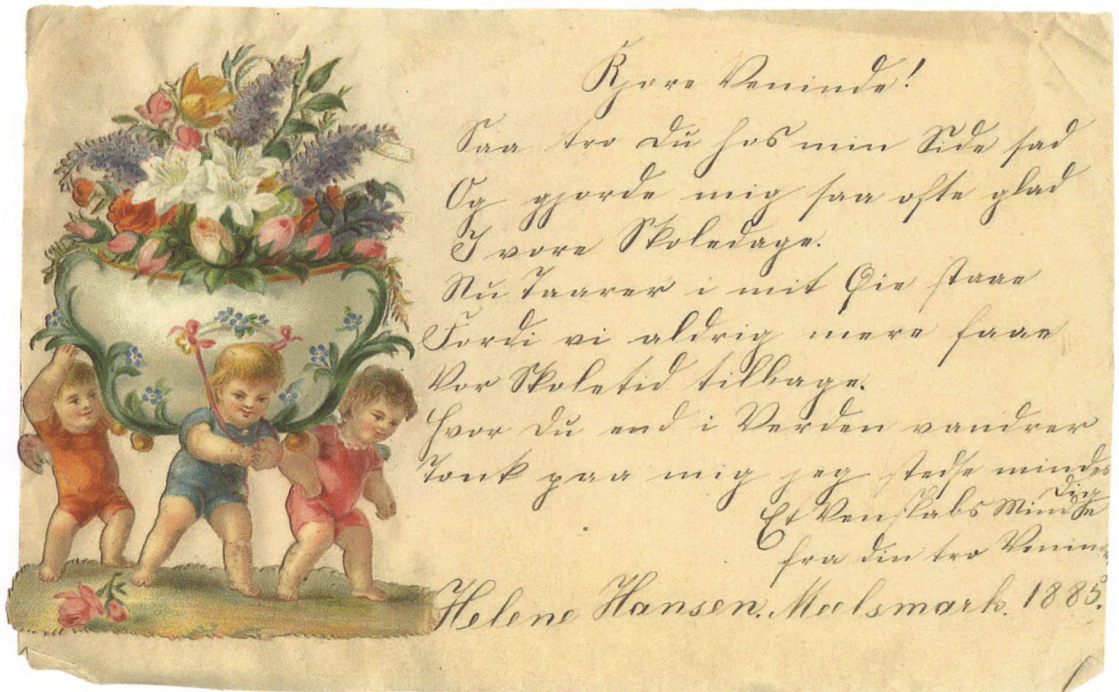 Kjære Veninde!
Saa tro du hos min Side sad
Og gjorde mig saa ofte glad
I vore Skoledage.
Nu Taarer i mit Øie staae
Fordi vi aldrig mere faae
Vor Skoletid tilbage.
Hvor du end i Verden vandrer
Tænk paa mig jeg stedse mindes
dig
Et Venskabs Minde
fra din tro Venin
Helene Hansen. Meelsmark. 1885.